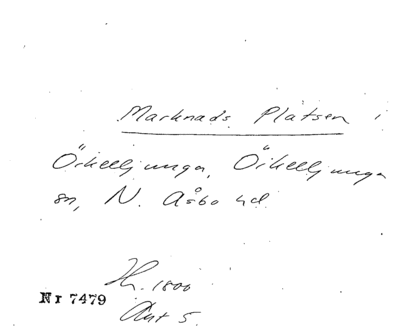 Marknads Platsen i
Örkelljunga, Örkelljunga
sn, N. Åsbo hd.
H. 1800
Nr 7479
Ant 5.